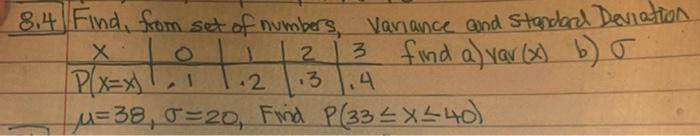 8.4 Find, from set of numbers, Variance and Standard Deviation
X 0 1 2 3 find a) var(x) b) σ
P(X=x) .1 .2 .3 .4
μ=38, σ=20, Find P(33≤X≤40)